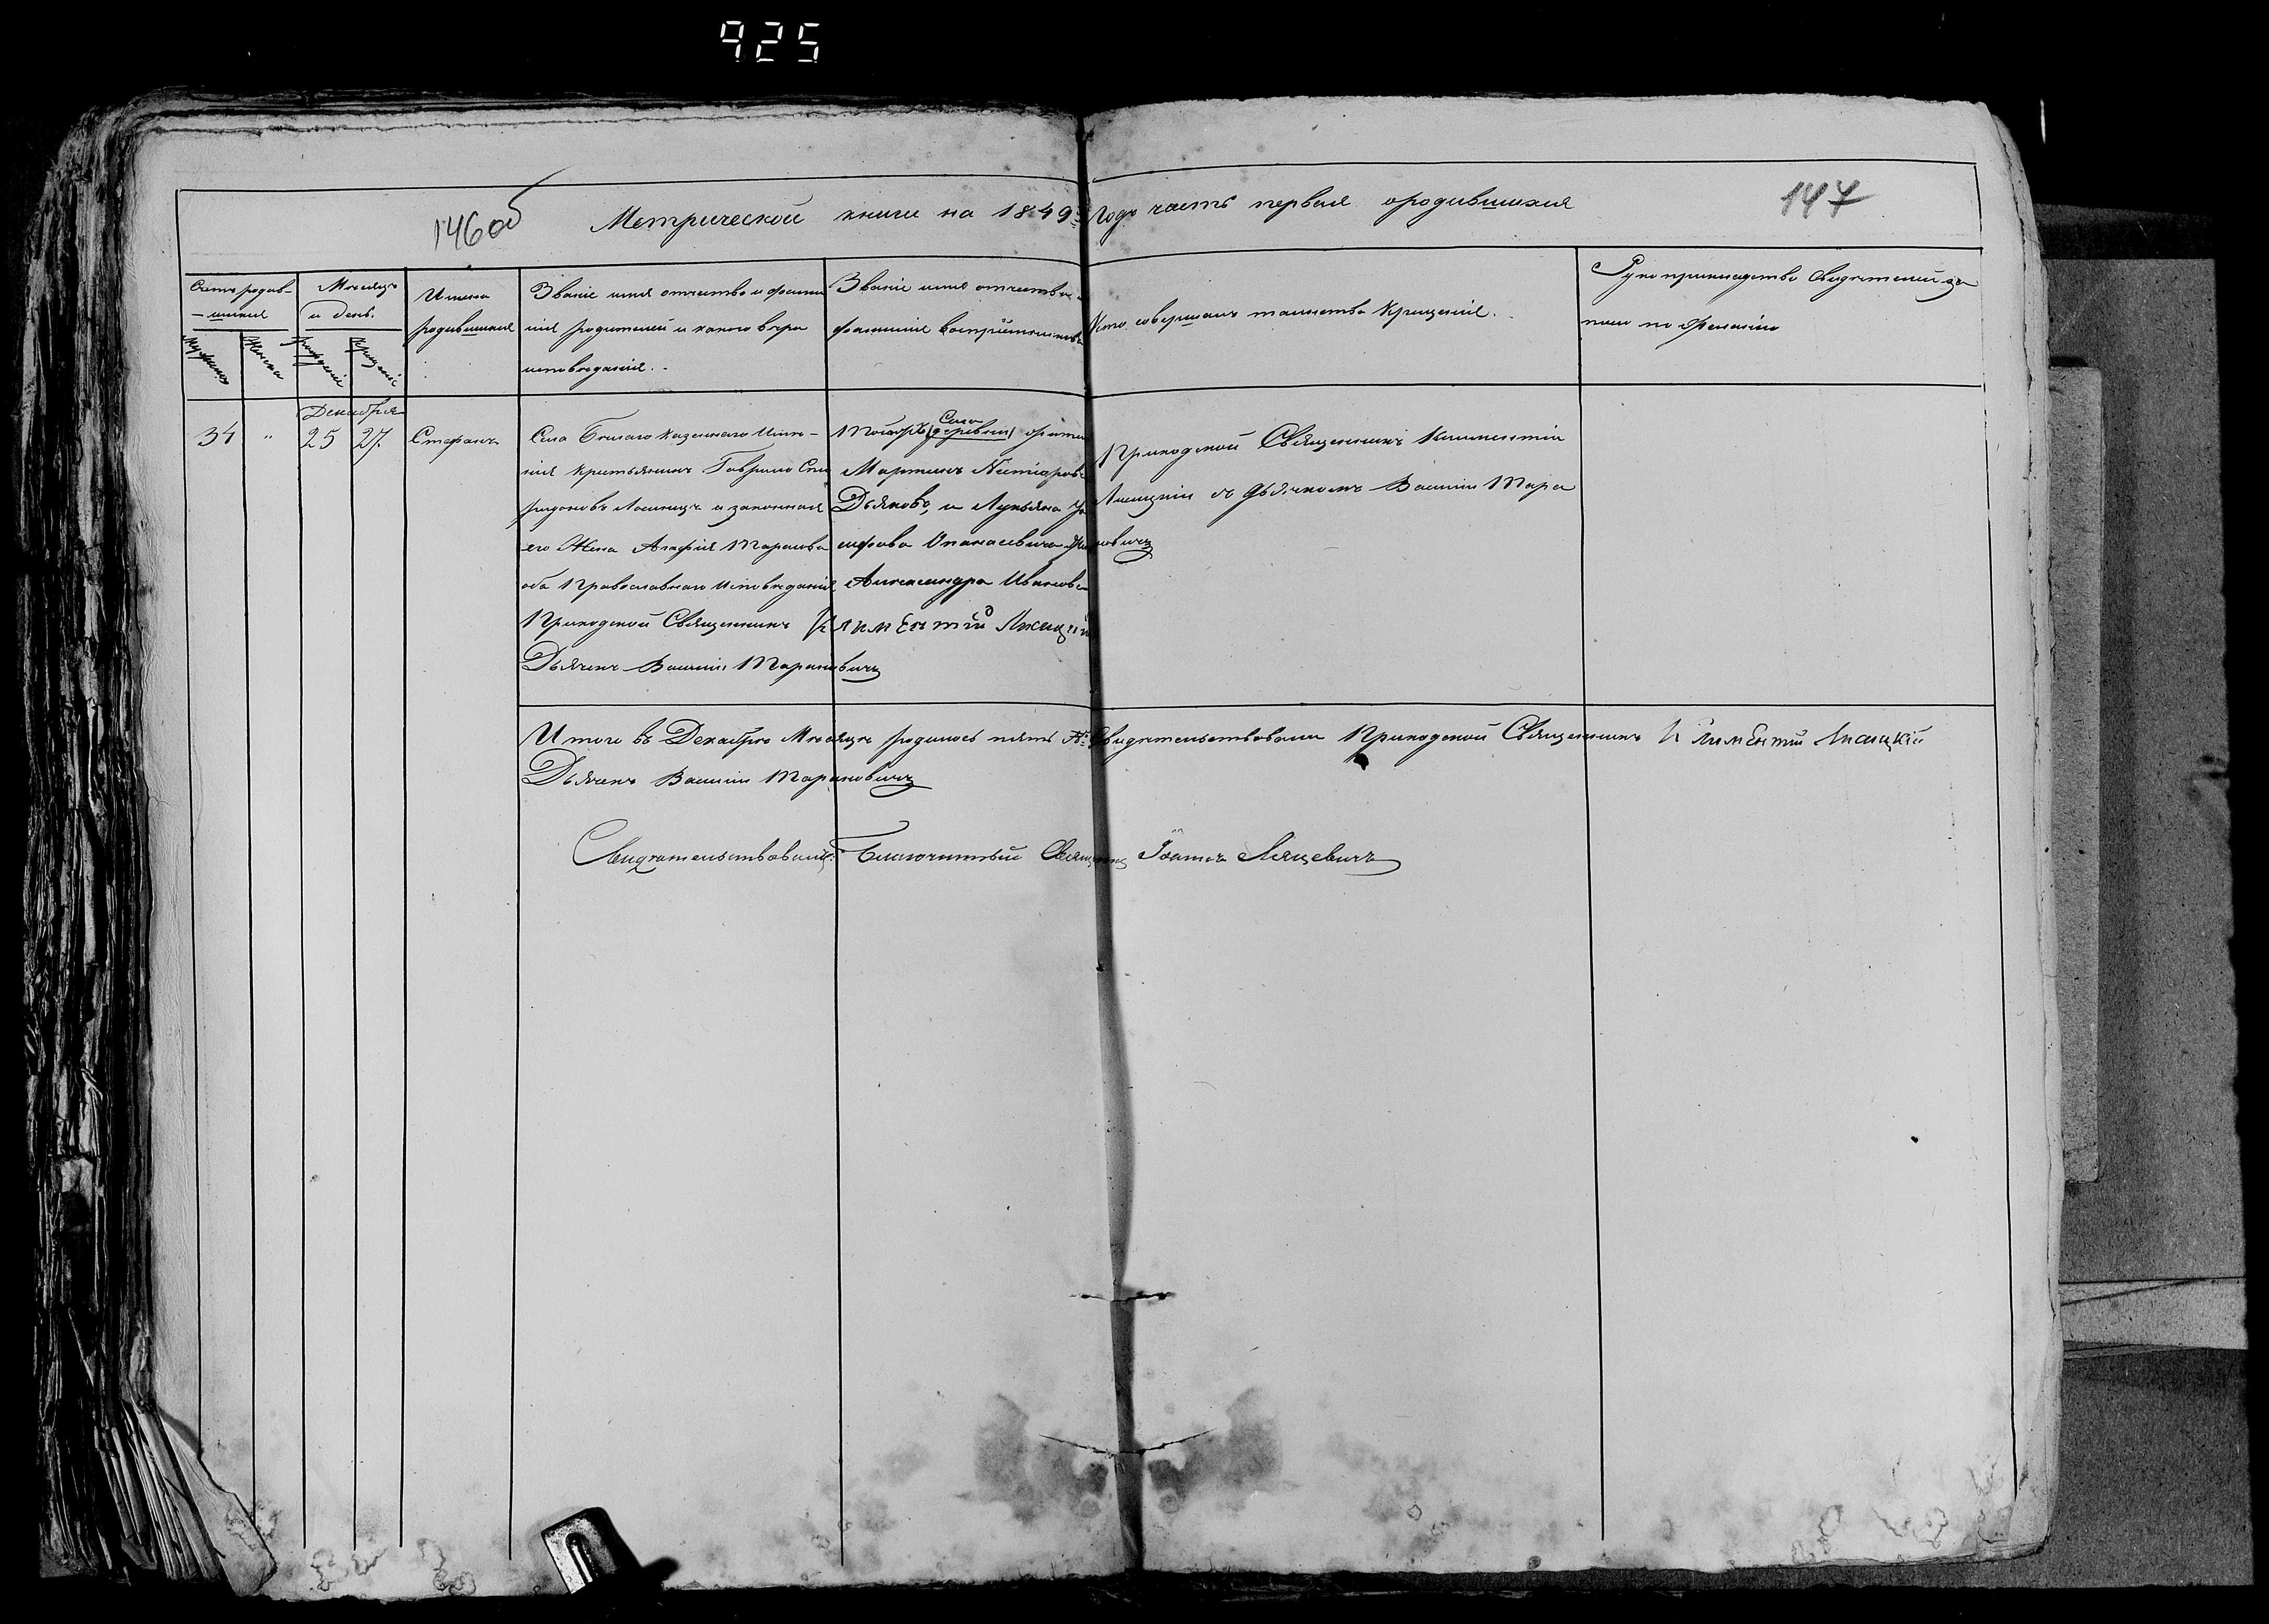 925
146об
Метрической книги на 1849 Годъ часть первая ородившихся
147
Счетъ родив-
-шихся
Мужеска
Женска
Месяцъ
и день.
рожденiе
Крещенiе
Имена
родившихся
Званiе имя отчество и фами
лiя родителей и какого вѣро
исповѣданiя.
Званiе имя отчество и
фамилiя воспрiемниковъ
Кто совершалъ таинство Крещенiя.
Рукоприкладство Свидѣтелей за
писи по желанiю
Декабря
34 " 25 27. Стефанъ
Села Бѣлаго Казеннаго Имѣ-
нiя крестьянинъ Гаврiилъ Спи
ридоновъ и законная
его Жена Агафiя Тарасова
оба Православнаго Исповѣданiя
Приходской Священникъ Климентiй Лисицкiй
Дьячекъ Василiй Тарановичъ
Тойже Села
(деревни)
Мартинъ
Дьяковъ, и Лукьяна
сифова Опанасевича
Александра Иванова
Приходской Священникъ Климентiй
Лисицкiй съ Дьячкомъ Василiй Тара
новичъ
Итого въ Декабрѣ Месяцѣ родилось пять Свидѣтельствовали Приходской Священникъ Климентiй Лисицкiй
Дьячекъ Василiй Тарановичъ
Свидѣтельствовалъ: Благочинный Священникъ Iоаннъ Ляцевичъ